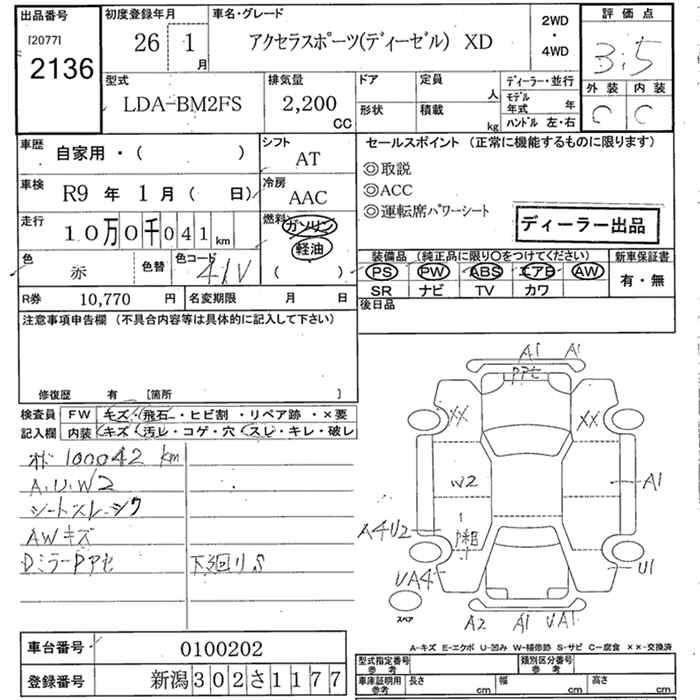 出品番号 初度登録年月 車名・グレード 2WD ・ 4WD 評価点
[2077]
2136
26 1月 アクセラスポーツ(ディーゼル) XD 3.5
型式 排気量 ドア 定員 人 ディーラー・並行 外装 内装
LDA-BM2FS 2,200 CC 形状 積載 kg モデル年式 年 C C
ハンドル 左・右
車歴 自家用・( ) シフト AT セールスポイント (正常に機能するものに限ります)
◎取説
車検 R9 年 1 月 ( 日) 冷房 AAC ◎ACC
◎運転席パワーシート
走行 10万0千041km 燃料 ガソリン 軽油 ( ) ディーラー出品
色 赤 色替 色コード 41V 装備品 (純正品に限り〇をつけてください) 新車保証書
PS PW ABS エアB AW 有・無
SR ナビ TV カワ
R券 10,770 円 名変期限 月 日 後日品
注意事項申告欄 (不具合内容等は具体的に記入して下さい)
修復歴 有 [箇所 ]
検査員 FW キズ・飛石・ヒビ割・リペア跡・×要
記入欄 内装 キズ・汚レ・コゲ・穴・スレ・キレ・破レ
オド 100042 km
A.U.W2
シートスレ・シワ
AWキズ
DミラーPアセ 下廻りS
A1 A1
Pアセ
XX XX
W2 A1
A4U2
UA4 U1
スペア
A2 A1 UA1
A-キズ E-エクボ U-凹み W-補修跡 S-サビ C-腐食 ××-交換済
車台番号 0100202
型式指定番号 参考 類別区分番号 参考
登録番号 新潟302さ1177
車庫証明用 参考 長さ cm 幅 cm 高さ cm